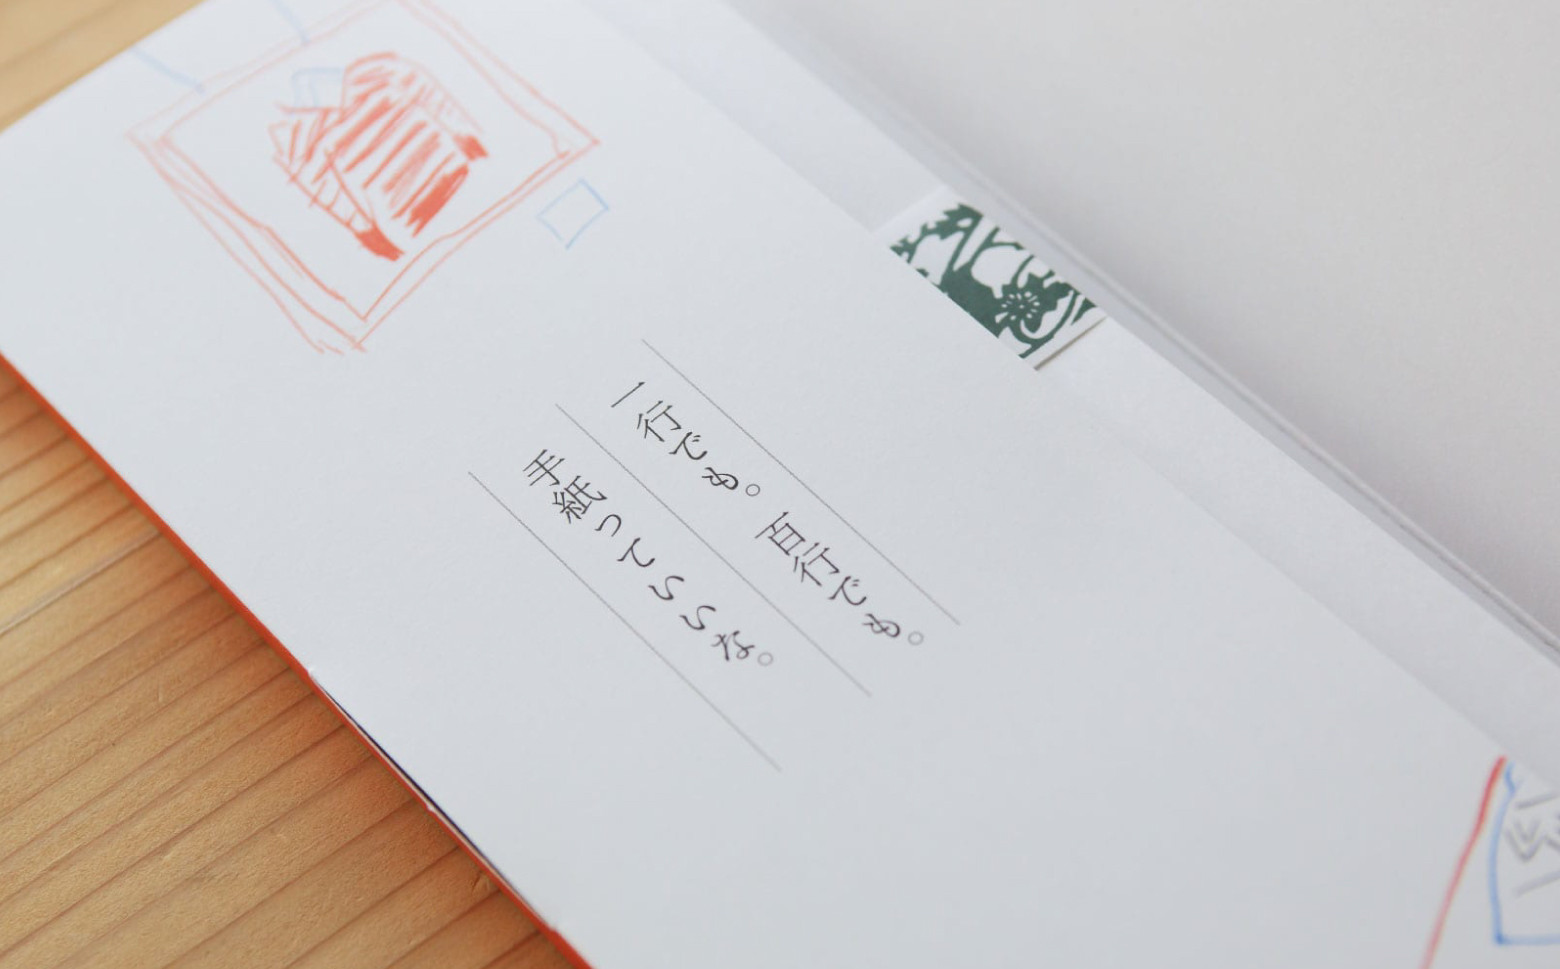 一行でも。百行でも。
手紙っていいな。